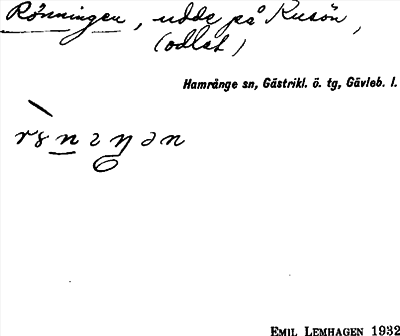 Rönningen, udde på Kusön,
(odlat)
Hamrånge sn, Gästrikl. ö. tg, Gävleb. l.
EMIL LEMHAGEN 1932